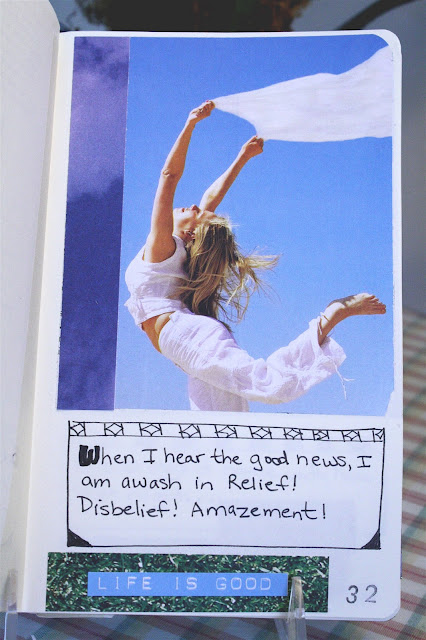 When I hear the good news, I
am awash in Relief!
Disbelief! Amazement!
LIFE IS GOOD
32